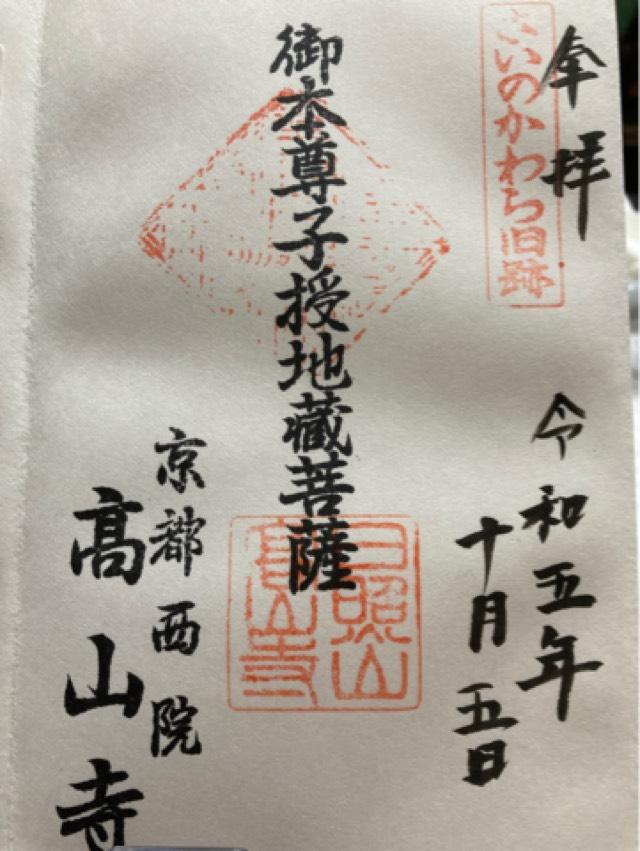 奉拝
さいのかわら旧跡
令和五年
十月五日
御本尊子授地蔵菩薩
日照山
高山寺
京都西院
髙山寺